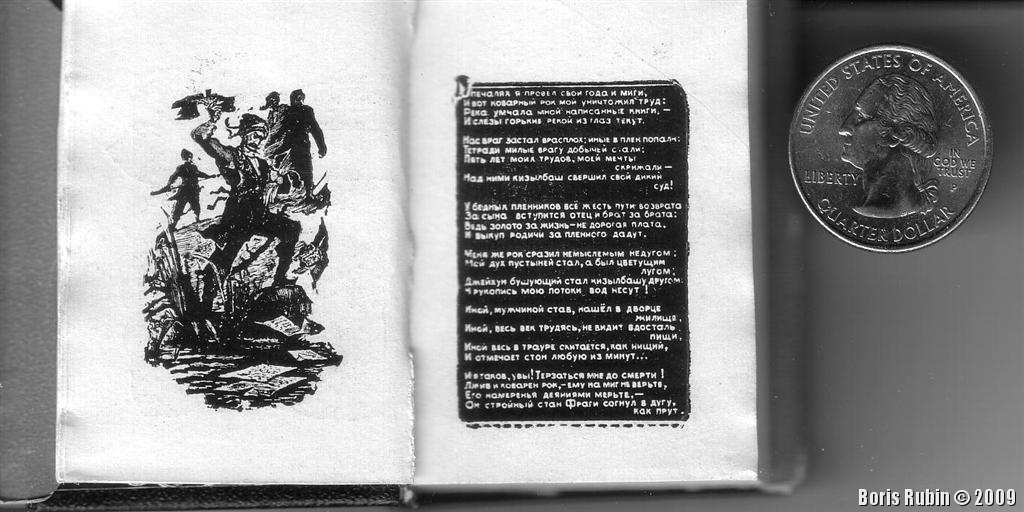 В печалях я провёл свои года и миги,
И вот коварный рок мой уничтожил труд:
Река умчала мной написанные книги,—
И слезы горькие рекой из глаз текут.
Нас враг застал врасплох; иные в плен попали;
Тетради милые врагу добычей стали;
Пять лет моих трудов, моей мечты
скрижали —
Над ними кизылбаш свершил свой дикий
суд!
У бедных пленников всё ж есть пути возврата
За сына вступится отец и брат за брата:
Ведь золото за жизнь—не дорогая плата,
И выкуп родичи за пленного дадут.
Меня же рок сразил немыслемым недугом;
Мой дух пустыней стал, а был цветущим
лугом;
Джейхун бушующий стал кизылбашу другом:
Рукопись мою потоки вод несут!
Иной, мужчиной став, нашёл в дворце
жилище,
Иной, весь век трудясь, не видит вдосталь
пищи,
Иной весь в трауре скитается, как нищий,
И отмечает стон любую из минут...
И я таков, увы! Терзаться мне до смерти!
Лжив и коварен рок,—ему на миг не верьте,
Его намеренья деяниями мерьте,—
Он стройный стан Фраги согнул в дугу,
как прут.
UNITED STATES OF AMERICA
LIBERTY
IN
GOD WE
TRUST
P
QUARTER DOLLAR
Boris Rubin © 2009